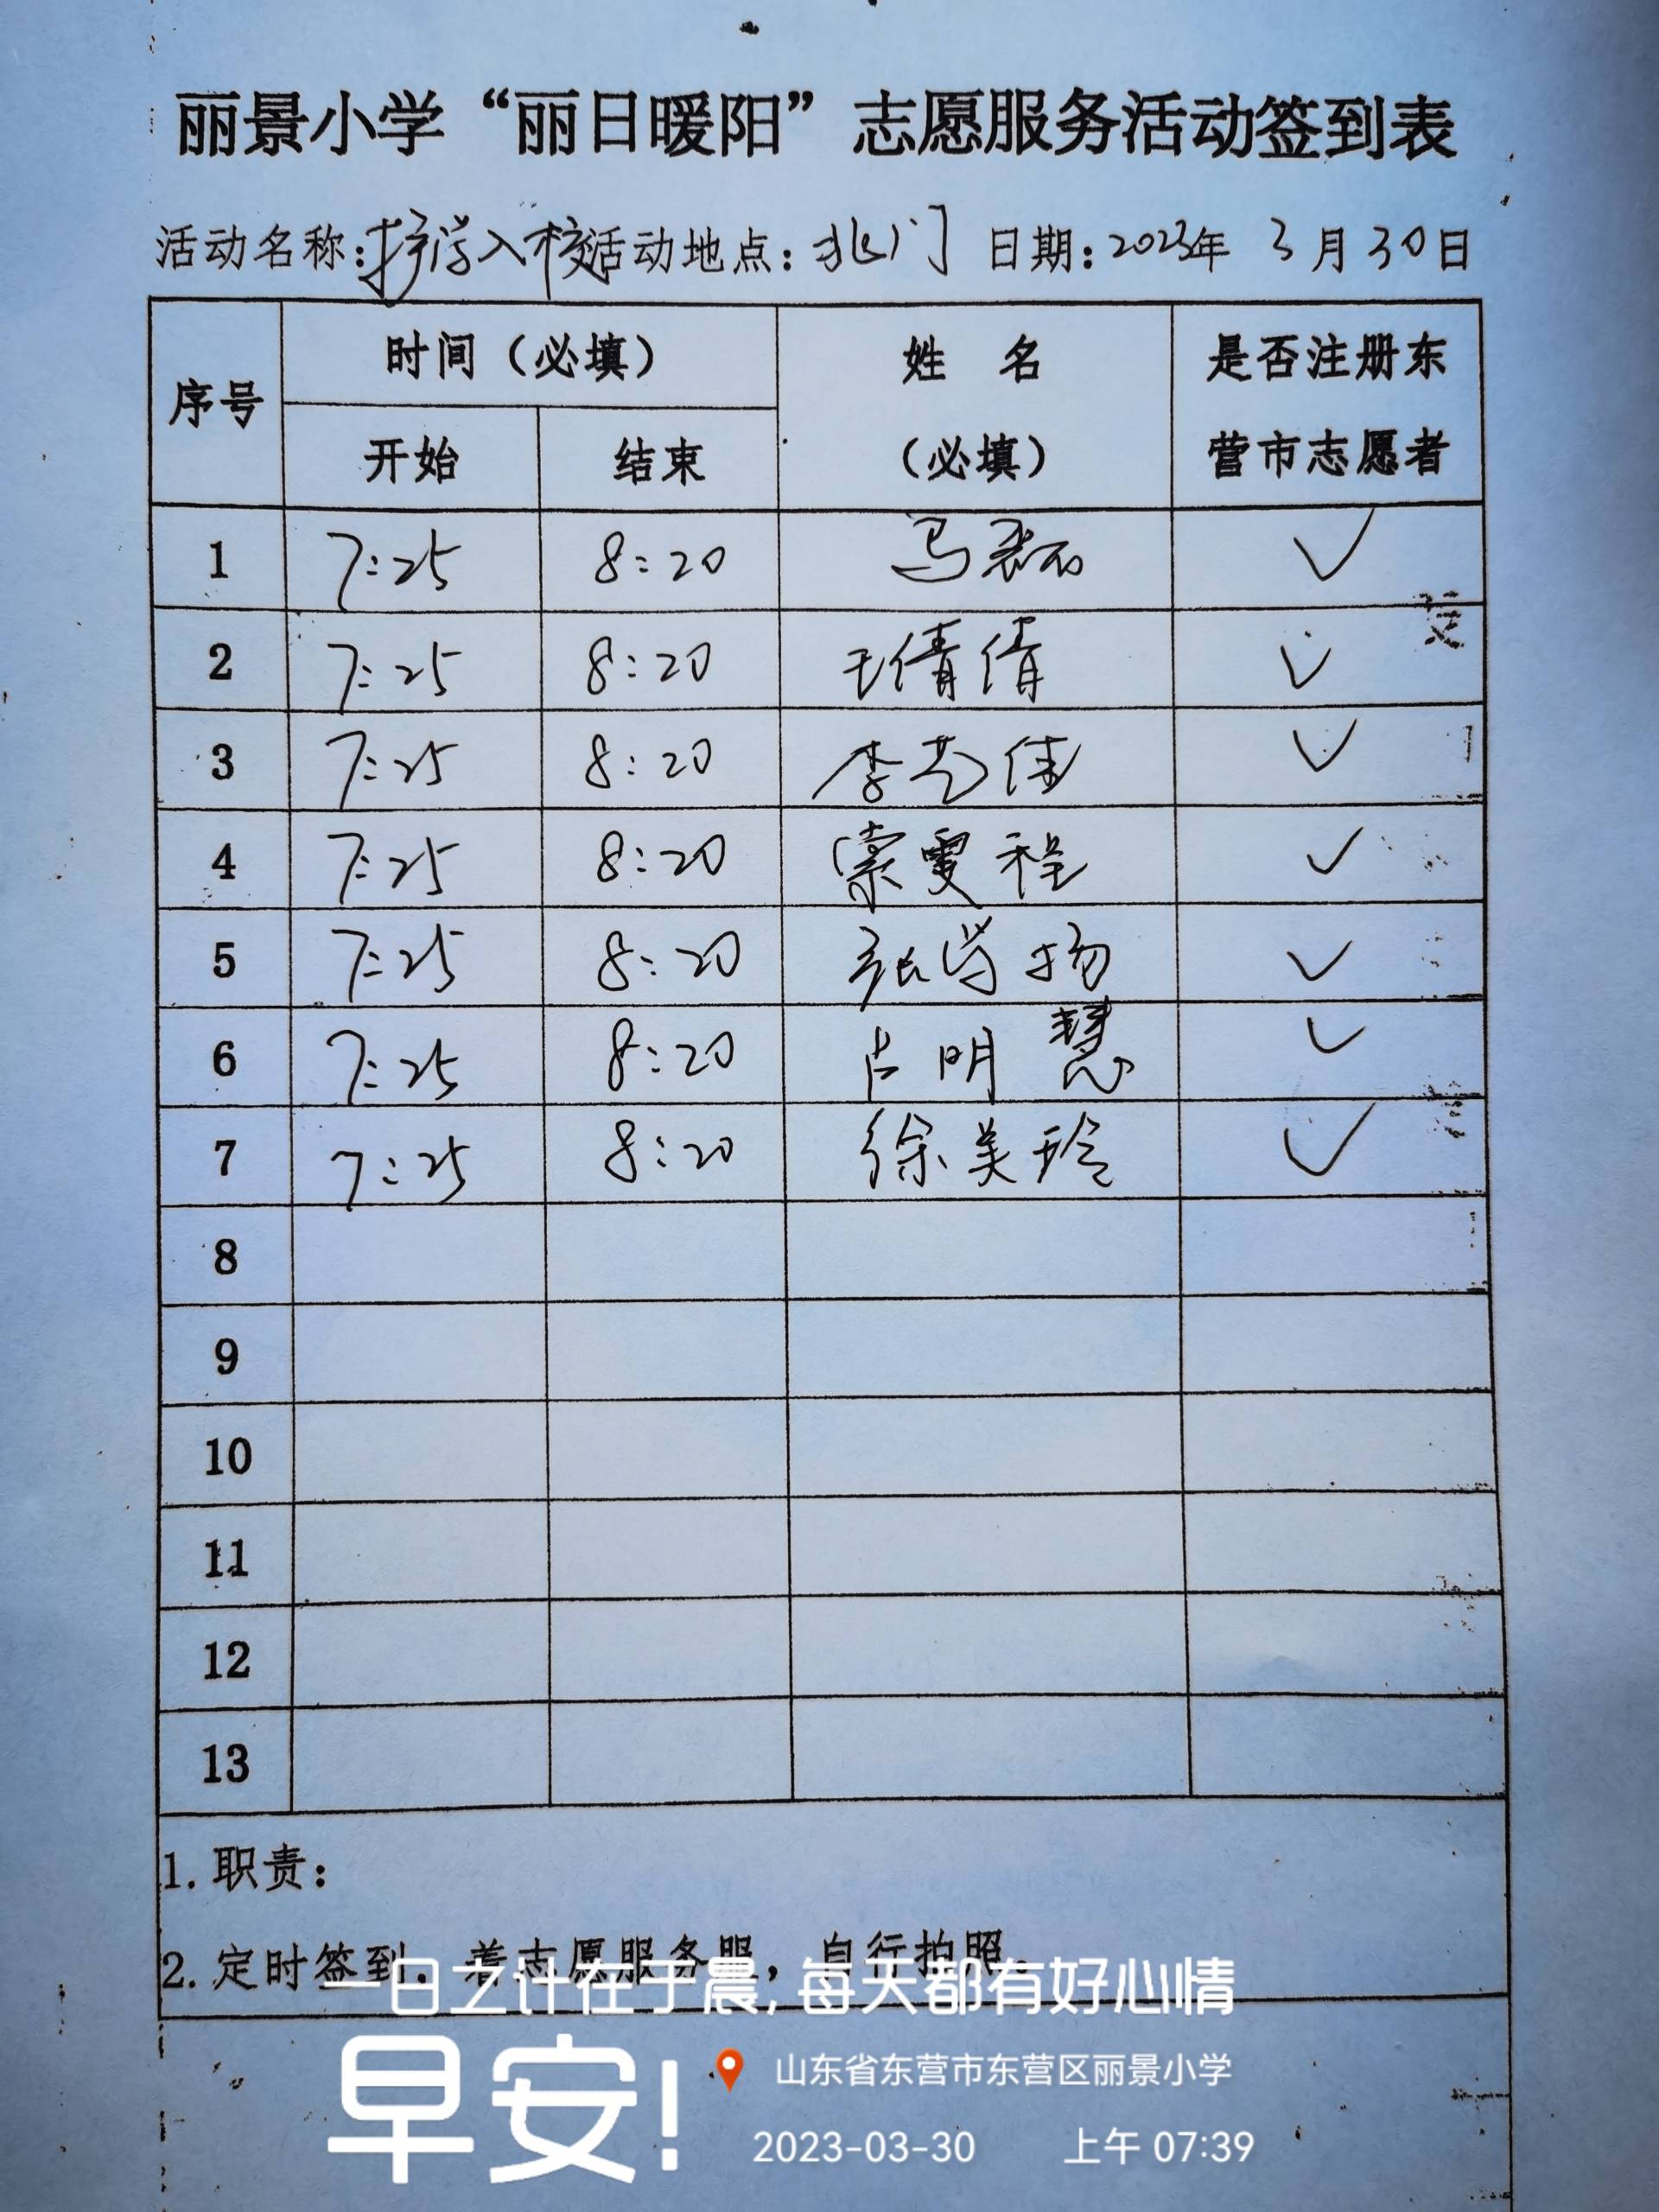 丽景小学“丽日暖阳”志愿服务活动签到表
活动名称:护学入校 活动地点:北门 日期:2023年 3月30日
序号 时间(必填) 姓 名 (必填) 是否注册东营市志愿者
开始 结束
1 7:25 8:20 马磊 ✓
2 7:25 8:20 王倩倩 ✓
3 7:25 8:20 李艺佳 ✓
4 7:25 8:20 索雯程 ✓
5 7:25 8:20 张学扬 ✓
6 7:25 8:20 占明慧 ✓
7 7:25 8:20 徐美玲 ✓
8
9
10
11
12
13
1.职责:
2.定时签到,着志愿服务服,自行拍照。
一日之计在于晨,每天都有好心情
早安!
山东省东营市东营区丽景小学
2023-03-30 上午 07:39